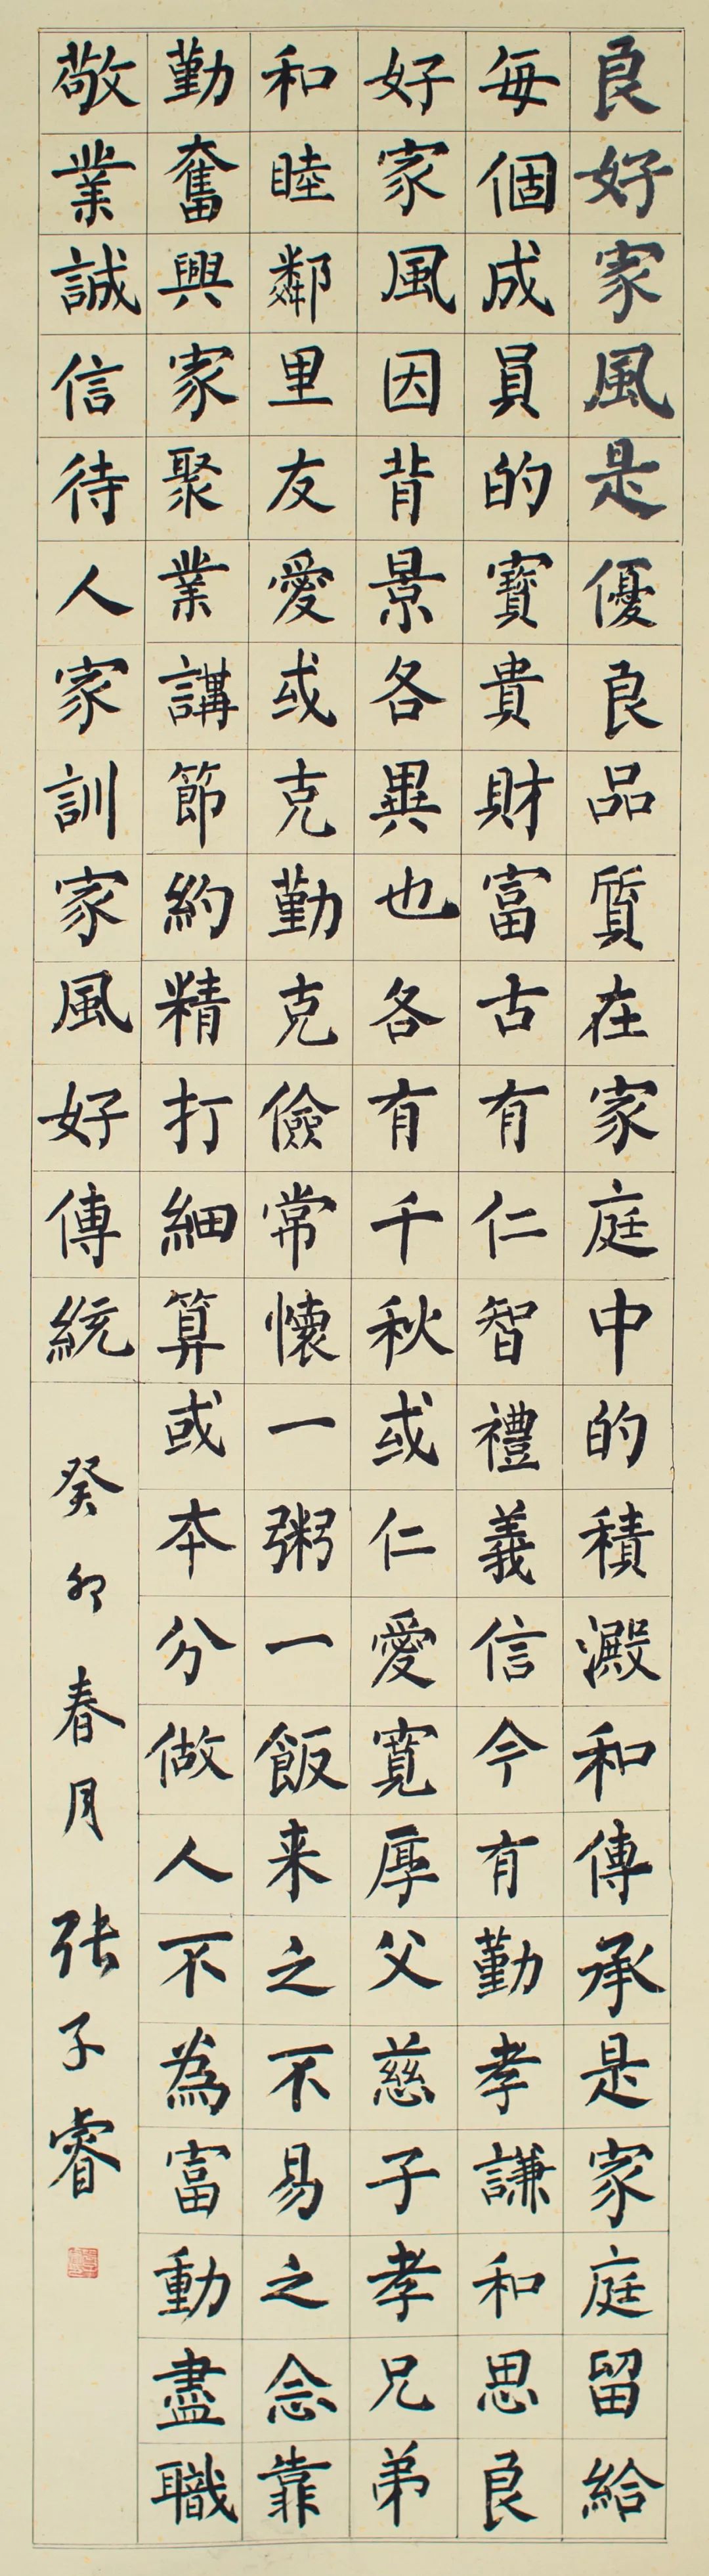 良好家風是優良品質在家庭中的積澱和傳承是家庭留給
每個成員的寶貴財富古有仁智禮義信今有勤孝謙和思良
好家風因背景各異也各有千秋或仁愛寬厚父慈子孝兄弟
和睦鄰里友愛或克勤克儉常懷一粥一飯来之不易之念靠
勤奮興家聚業講節約精打細算或本分做人不為富動盡職
敬業誠信待人家訓家風好傳統
癸卯春月張子睿